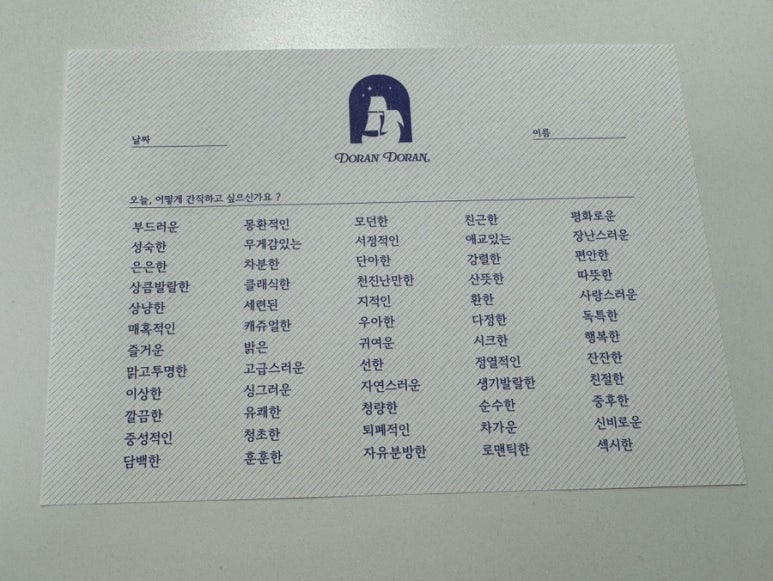 DORAN DORAN,
날짜
이름
오늘, 어떻게 간직하고 싶으신가요 ?
부드러운 몽환적인 모던한 친근한 평화로운
성숙한 무게감있는 서정적인 애교있는 장난스러운
은은한 차분한 단아한 강렬한 편안한
상큼발랄한 클래식한 천진난만한 산뜻한 따뜻한
상냥한 세련된 지적인 환한 사랑스러운
매혹적인 캐쥬얼한 우아한 다정한 독특한
즐거운 밝은 귀여운 시크한 행복한
맑고투명한 고급스러운 선한 정열적인 잔잔한
이상한 싱그러운 자연스러운 생기발랄한 친절한
깔끔한 유쾌한 청량한 순수한 중후한
중성적인 청초한 퇴폐적인 차가운 신비로운
담백한 훈훈한 자유분방한 로맨틱한 섹시한